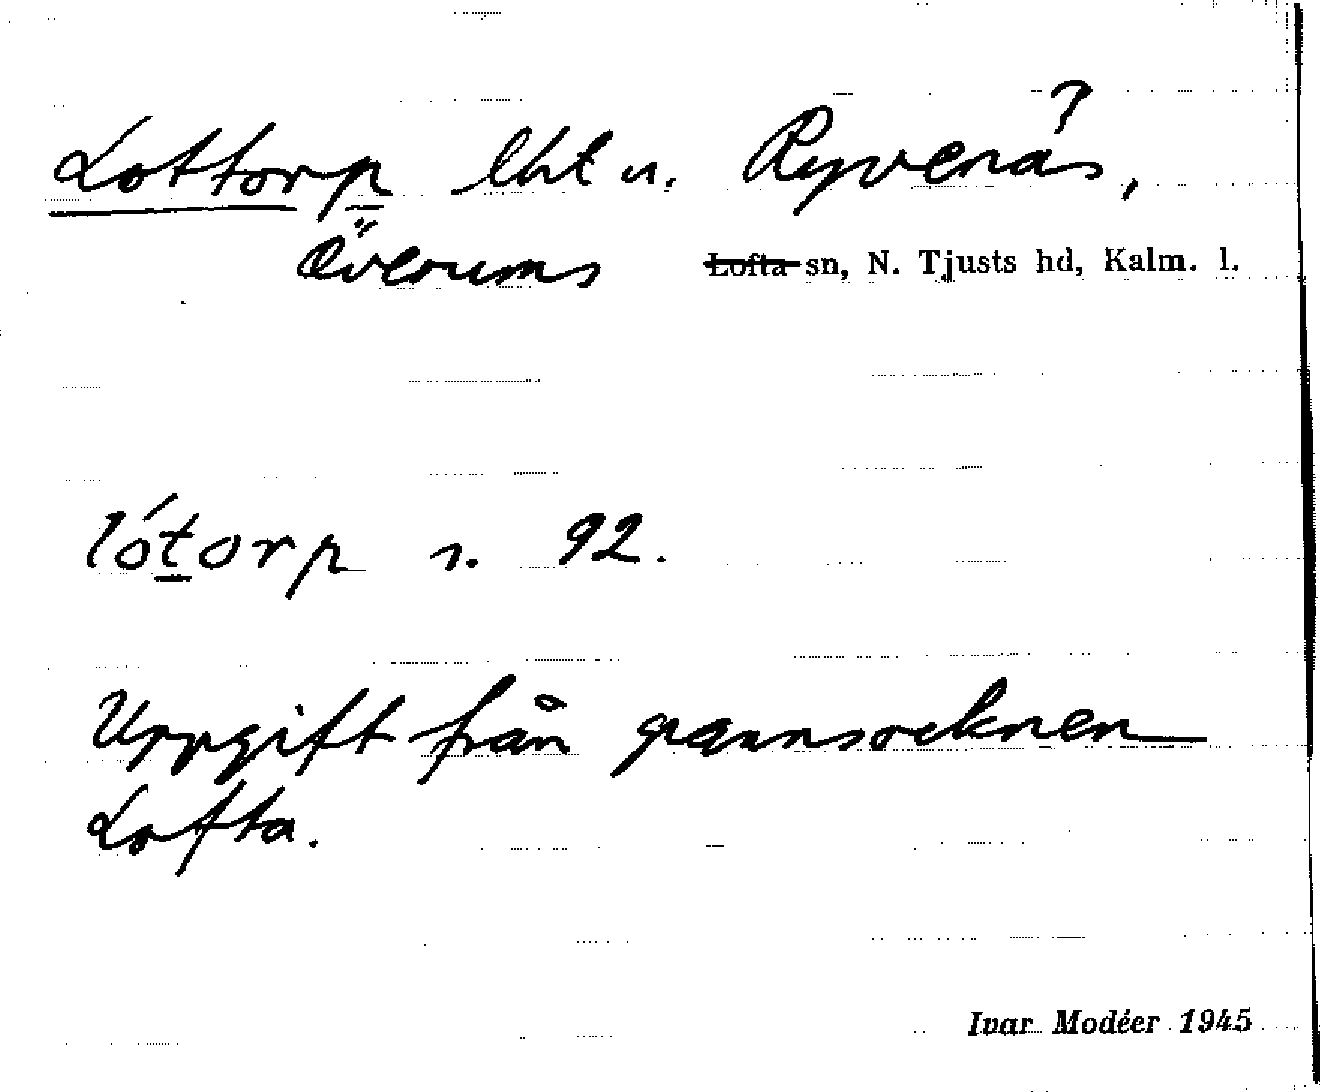 Lottorp lht u. Ryvenäs, ?
Överums Lofta sn, N. Tjusts hd, Kalm. l.
lótorp s. 92.
Uppgift från grannsocknen
Lofta.
Ivar Modéer 1945